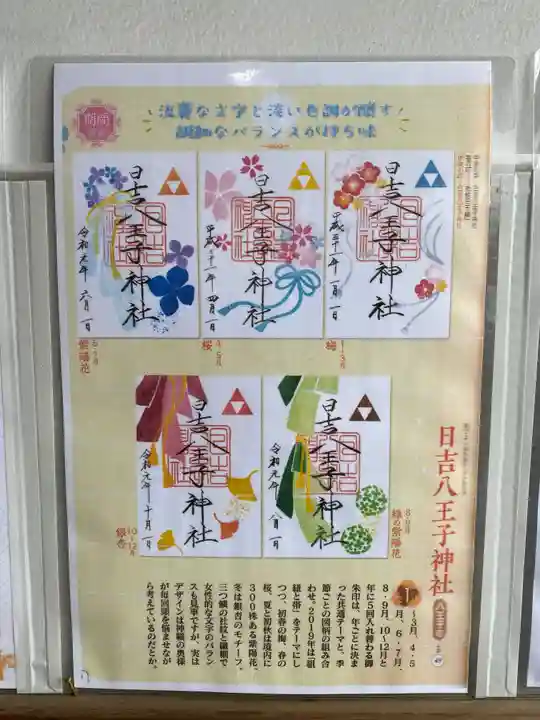 期間
流麗な文字と淡い色調が醸す
繊細なバランスが持ち味
日吉八王子神社
令和元年 六月一日
6・7月
紫陽花
日吉八王子神社
平成三十一年 四月一日
4・5月
桜
日吉八王子神社
平成三十一年一月一日
1〜3月
梅
日吉八王子神社
令和元年 十月一日
10〜12月
銀杏
日吉八王子神社
令和元年 八月一日
8・9月
緑の紫陽花
日吉八王子神社
八王子市
1〜3月、4・5
月、6・7月、
8・9月、10〜12月と
年に5回入れ替わる御
朱印は、年ごとに決ま
った共通テーマと、季
節ごとの図柄の組み合
わせ。2019年は「組
紐と帯」をテーマにし
つつ、初春の梅、春の
桜、夏と初秋は境内に
300株ある紫陽花、
冬は銀杏のモチーフ。
三つ鱗の社紋と繊細で
女性的な文字のバラン
スも見事ですが、実は
デザインは神職の奥様
が毎回頭を悩ませなが
ら考えているのだとか。